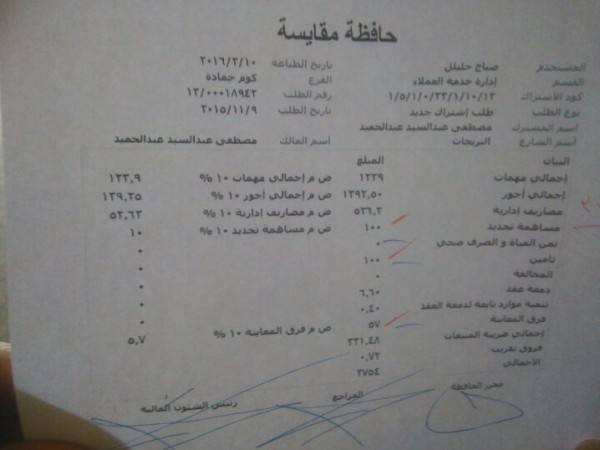 حافظة مقايسة
المستخدم صباح خليل تاريخ الطباعة ٢٠١٦/٢/١٠
القسم إدارة خدمة العملاء الفرع كوم حمادة
كود الأشتراك ١/٥/١/٠/٣٣/١/١٠/١٣ رقم الطلب ١٣/٠٠٠١٨٩٤٢
نوع الطلب طلب إشتراك جديد تاريخ الطلب ٢٠١٥/١١/٩
اسم المشترك مصطفى عبدالسيد عبدالحميد
اسم الشارع البريجات اسم المالك مصطفى عبدالسيد عبدالحميد
البيان المبلغ
إجمالي مهمات ١٣٣٩ ض م إجمالي مهمات ١٠ % ١٣٣,٩
إجمالي أجور ١٣٩٢,٥٠ ض م إجمالي أجور ١٠ % ١٣٩,٢٥
مصاريف إدارية ٥٣٦,٣ ض م مصاريف إدارية ١٠ % ٥٣,٦٣
مساهمة تجديد ١٠٠ ض م مساهمة تجديد ١٠ % ١٠
ثمن المياة و الصرف صحي ٠ ٠
تامين ١٠٠ ٠
المخالفة ٠ ٠
دمغة عقد ٦,٦٠ ٠
تنمية موارد تابعة لدمغة العقد ٠,٤٠ ٠
فرق المعاينة ٥٧ ض م فرق المعاينة ١٠ % ٥,٧
إجمالي ضريبة المبيعات ٣٣١,٤٨
فروق تقريب ٠,٧٢
الأجمالي ٣٧٥٤
محرر الحافظة المراجع رئيس الشئون المالية